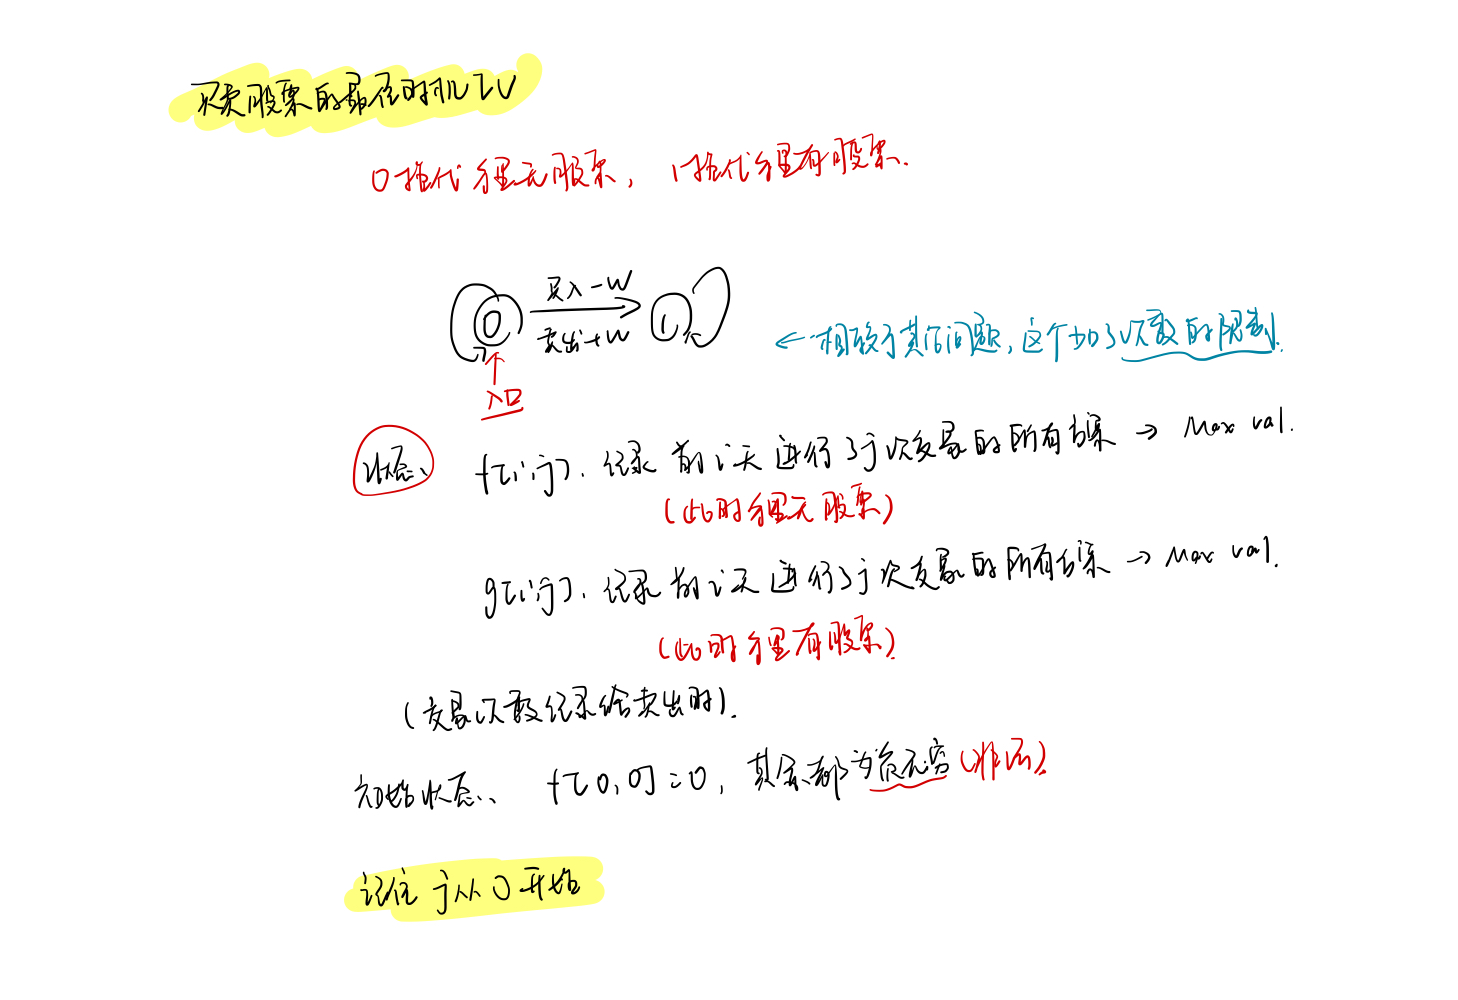 买卖股票的最佳时机IV
0指代手里无股票, 1指代手里有股票.
买入-W
0 1
卖出+W
入口
←相较于其他问题,这个加了次数的限制.
状态、 f[i,j]. 记录 前i天 进行了j次交易的所有方案 → Max val.
(此时手里无股票)
g[i,j]. 记录 前i天 进行了j次交易的所有方案 → Max val.
(此时手里有股票)
(交易次数记录给卖出时).
初始状态、 f[0,0]=0, 其余都为负无穷(非法)
记住 j从0开始